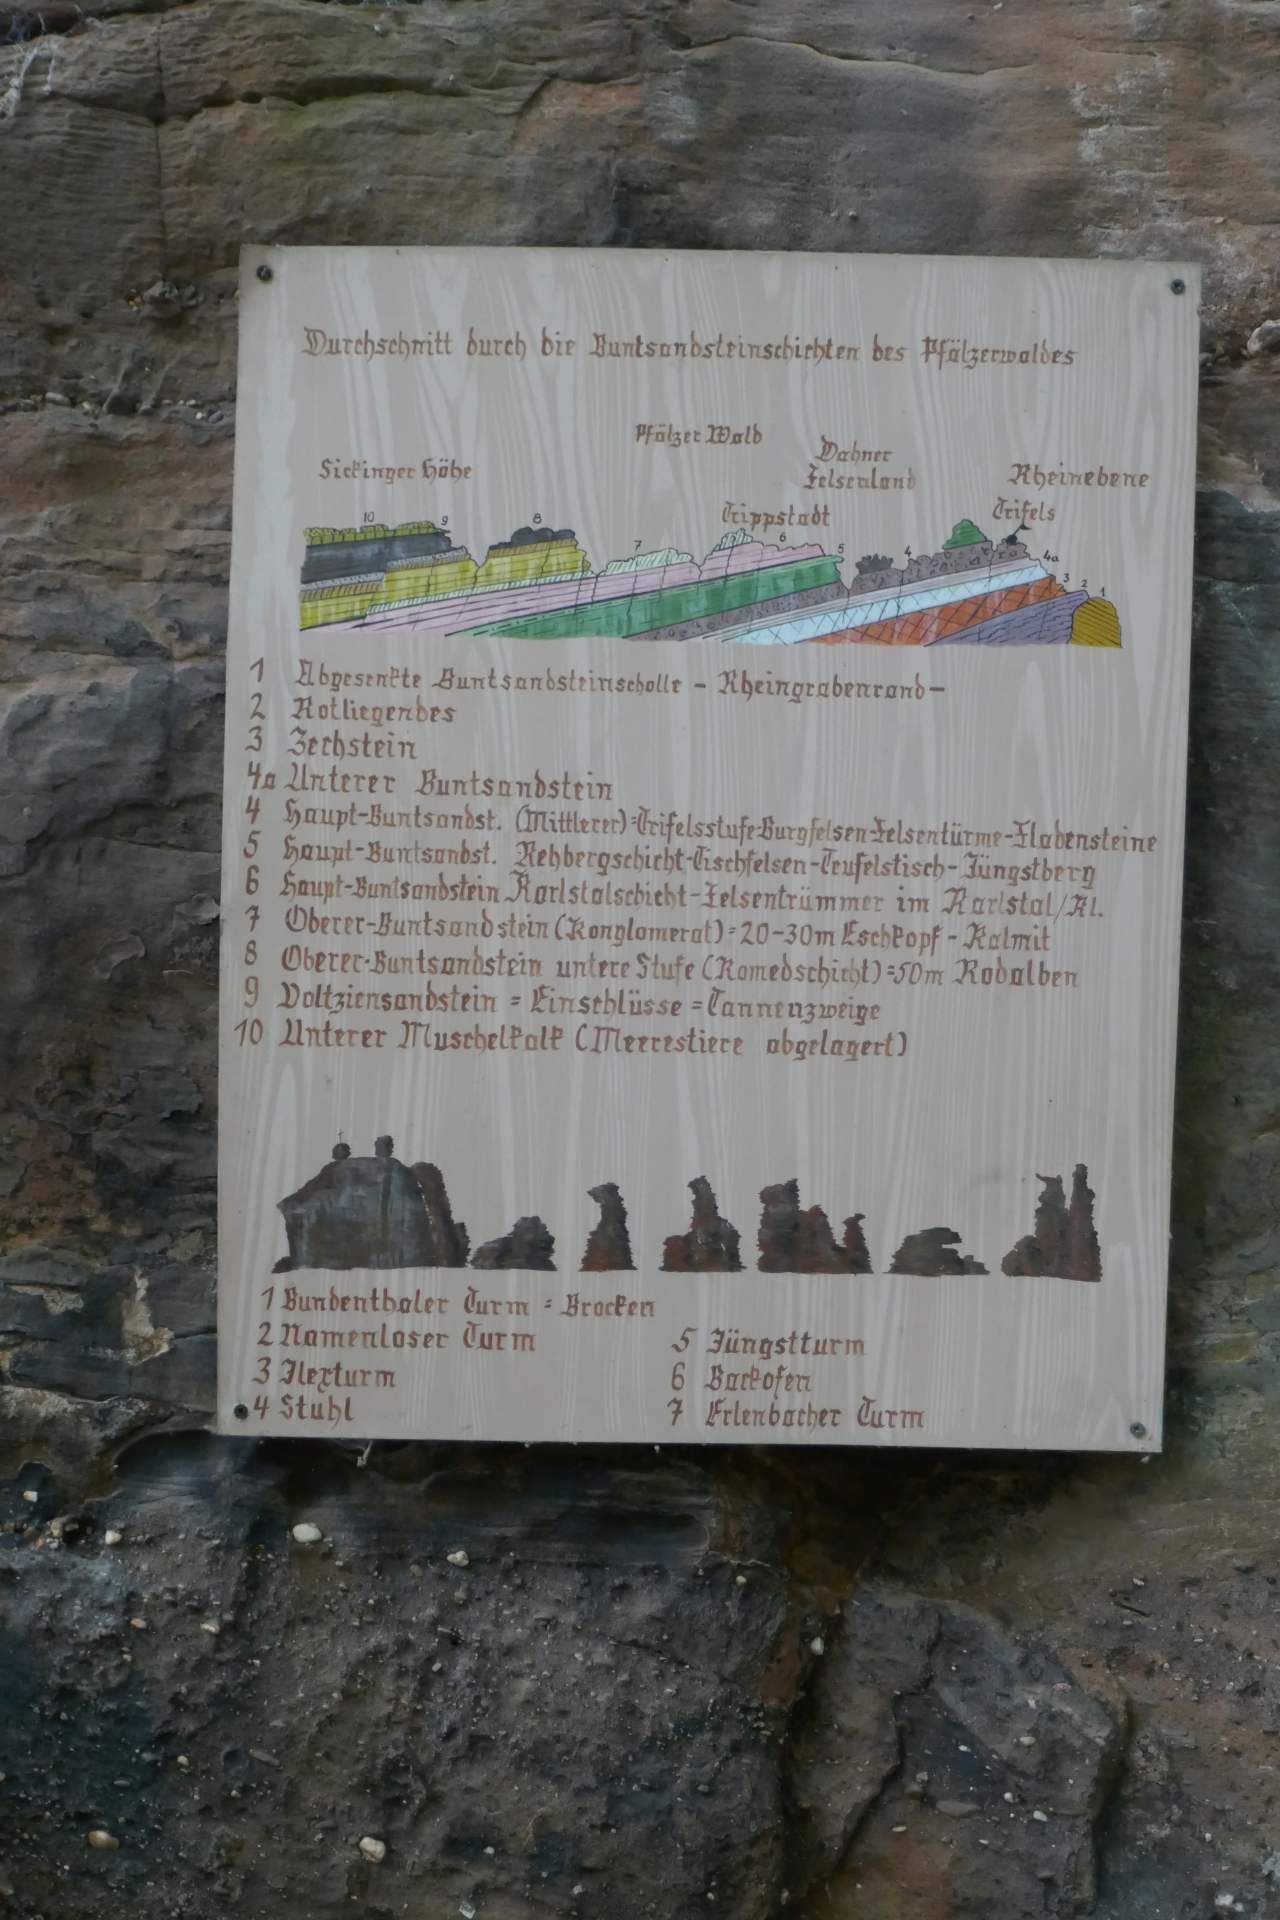 Durchschnitt durch die Buntsandsteinschichten des Pfälzerwaldes
Pfälzer Wald
Dahner
Felsenland
Sickinger Höhe
Rheinebene
Trippstadt
Trifels
10 9 8 7 6 5 4 4a 3 2 1
1 Abgesenkte Buntsandsteinscholle - Rheingrabenrand-
2 Rotliegendes
3 Zechstein
4a Unterer Buntsandstein
4 Haupt-Buntsandst. (Mittlerer)=Trifelsstufe=Burgfelsen-Felsentürme-Fladensteine
5 Haupt-Buntsandst. Rehbergschicht-Tischfelsen-Teufelstisch-Jüngstberg
6 Haupt-Buntsandstein Karlstalschicht-Felsentrümmer im Karlstal/Kl.
7 Oberer-Buntsandstein (Konglomerat)=20-30m Eschkopf-Kalmit
8 Oberer-Buntsandstein untere Stufe (Romedschicht)=50m Rodalben
9 Voltziensandstein = Einschlüsse = Tannenzweige
10 Unterer Muschelkalk (Meerestiere abgelagert)
1 Bundenthaler Turm = Brocken
2 Namenloser Turm
3 Ilexturm
4 Stuhl
5 Jüngstturm
6 Backofen
7 Erlenbacher Turm